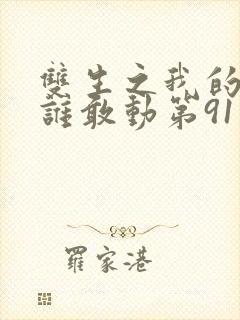 雙生之我的
誰敢動第91
羅家港